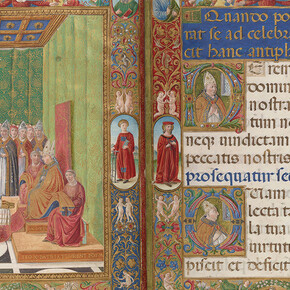 Quando po
se ad celebr
cit hanc antiph
E rem
domin
nostra
tum n
neqꝫ vindictam
peccatis nostris
prosequatur se
Uam
lecta ta
tua
piscit et deficit